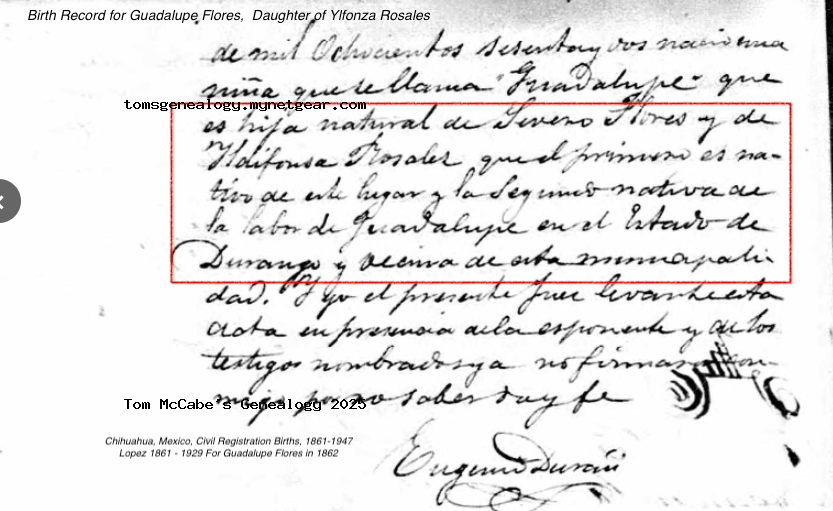 Birth Record for Guadalupe Flores, Daughter of Ylfonza Rosales
de mil Ochocientos sesenta y dos nacio una
niña que se llama "Guadalupe" que
tomsgenealogy.mynetgear.com
es hija natural de Severo Flores y de
Ildifonsa Rosales que el primero es na-
tivo de este lugar y la Segunda nativa de
la labor de Guadalupe en el Estado de
Durango y vecina de esta municipali-
dad. Y yo el presente Juez levante esta
acta en presencia de la esponente y de los
testigos nombrados y a no firmaron con-
migo por no saber doy fe
Tom McCabe's Genealogy 2025
Chihuahua, Mexico, Civil Registration Births, 1861-1947
Lopez 1861 - 1929 For Guadalupe Flores in 1862
Eugenio Durán